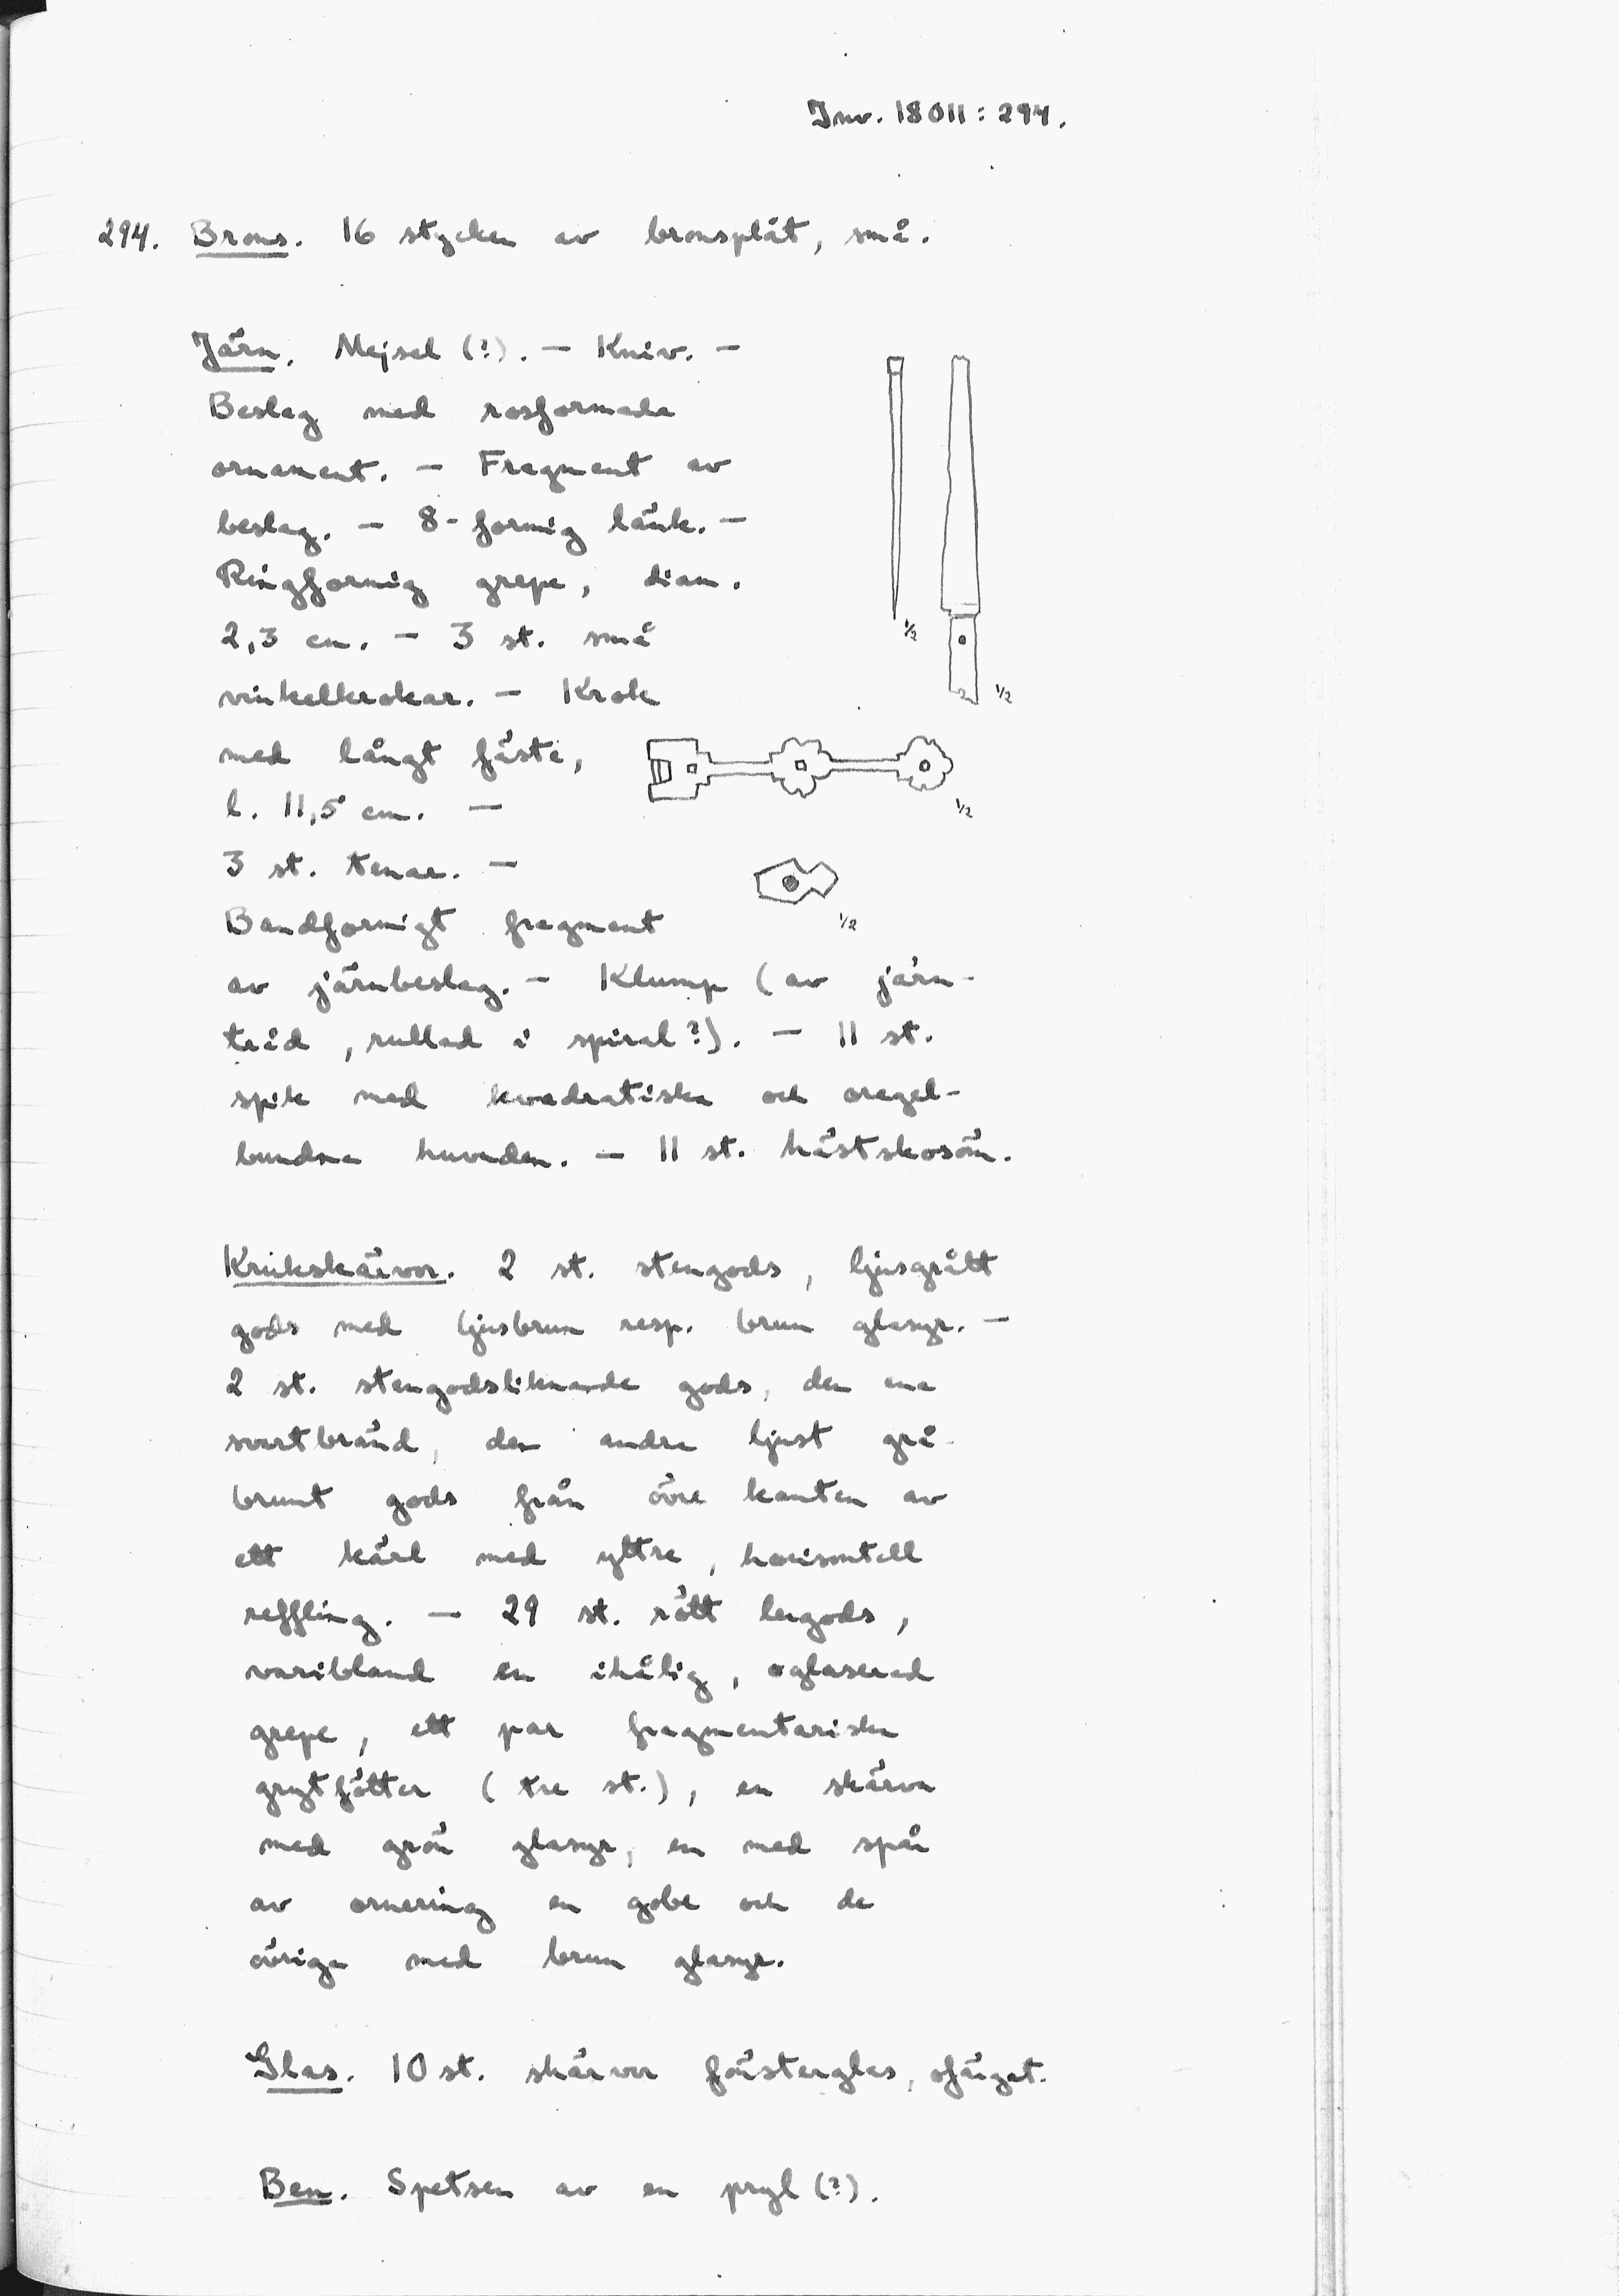 Inv. 18011:294.
294. Brons. 16 stycken av bronsplåt, små.
Järn. Mejsel (?). — Kniv. —
Beslag med rosformade
ornament. — Fragment av
beslag. — 8-formig länk. —
Ringformig grepe, diam.
2,3 cm. — 3 st. små
vinkelkrokar. — Krok
med långt fäste,
l. 11,5 cm. —
3 st. tenar. —
Bandformigt fragment
av järnbeslag. — Klump (av järn-
tråd, rullad i spiral?). — 11 st.
spik med kvadratiska och oregel-
bundna huvuden. — 11 st. hästskosöm.
½
½
½
½
Krukskärvor. 2 st. stengods, ljusgrått
gods med ljusbrun resp. brun glasyr. —
2 st. stengodsliknande gods, den ena
svartbränd, den andra ljust grå-
brunt gods från övre kanten av
ett kärl med yttre, horisontell
reffling. — 29 st. rött lergods,
varibland en ihålig, oglaserad
grepe, ett par fragmentariska
grytfötter (tre st.), en skärva
med grön glasyr, en med spår
av ornering en gobe och de
övriga med brun glasyr.
Glas. 10 st. skärvor fönsterglas, ofärgat.
Ben. Spetsen av en pryl (?).